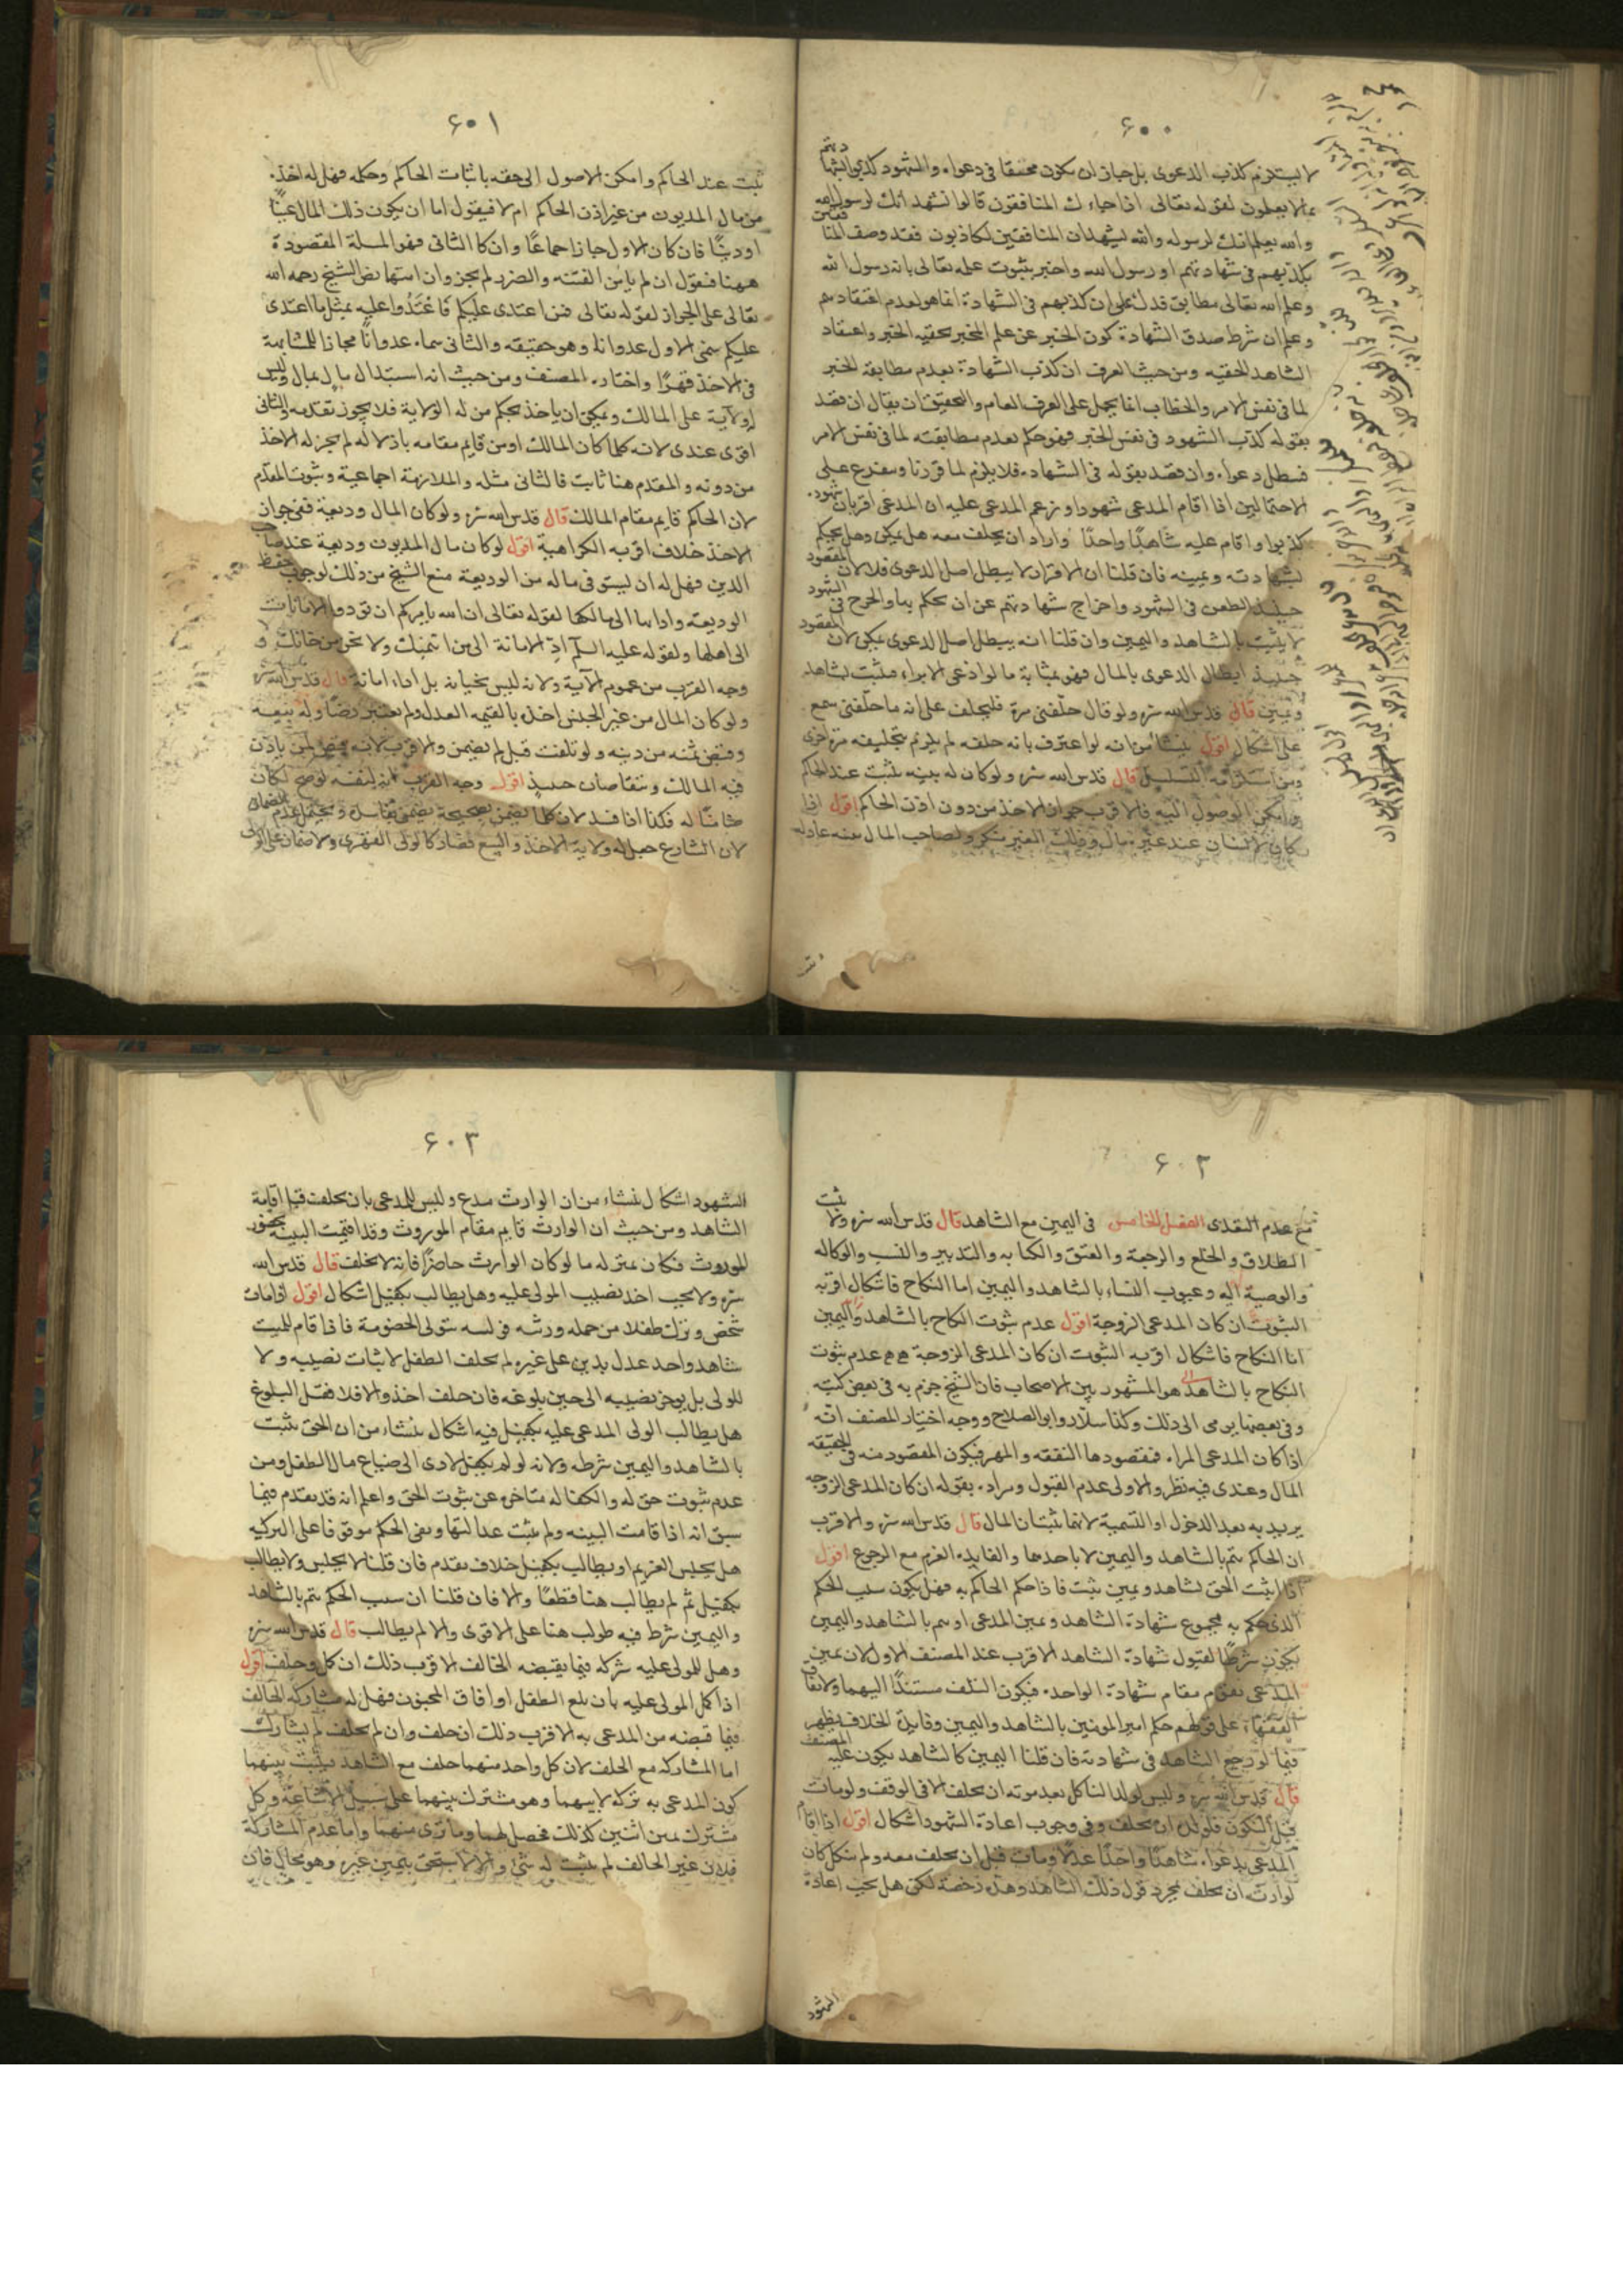 ٦٠٠
لا يستلزم كذب الدعوى بل جاز ان يكون محققا فى دعواه والشهود كذبوا لشهادتهم
بما لا يعلمون لقوله تعالى اذا جاءك المنافقون قالوا نشهد انك لرسول الله
والله يعلم انك لرسوله والله يشهد ان المنافقين لكاذبون فقد وصف المنافقين
بكذبهم فى شهادتهم او رسول الله واخبر بثبوت علمه تعالى بانه رسول الله
وعلم الله تعالى مطابق فدل على ان كذبهم فى الشهادة انما هو لعدم اعتقادهم
وعلم ان شرط صدق الشهادة كون الخبر عن علم المخبر بحقيه الخبر واعتقاد
الشاهد لحقيه ومن حيث العرف ان كذب الشهادة بعدم مطابقة الخبر
لما فى نفس الامر والخطاب انما يحمل على العرف العام والتحقيق ان يقال ان قصد
بقوله كذب الشهود فى نفس الخبر فهو حكم بعدم مطابقته لما فى نفس الامر
فبطل دعواه وان قصد بقوله فى الشهادة فلا يلزم لما قررنا ويتفرع على
الاحتمالين اذا اقام المدعى شهودا وزعم المدعى عليه ان المدعى اقر بان شهوده
كذبوا واقام عليه شاهدًا واحدًا واراد ان يحلف معه هل يمكن وهل يحكم
بشهادته ويمينه فان قلنا ان الاقرار لا يبطل اصل الدعوى فلا لان المقصود
حينئذ الطعن فى الشهود واخراج شهادتهم عن ان يحكم بها والجرح فى الشهود
لا يثبت بالشاهد واليمين وان قلنا انه يبطل اصل الدعوى يمكن لان المقصود
حينئذ ابطال الدعوى بالمال فهو بمثابة ما لو ادعى الابراء فيثبت بشاهد
ويمين قال قدس الله سره ولو قال حلّفنى مرة فليحلف على انه ما حلّفنى سمع
على اشكال اقول ينشأ من انه لو اعترف بانه حلفه لم يلزم بتحليفه مرة اخرى
ومن استلزامه التسلسل قال قدس الله سره ولو كان له بينه يثبت عند الحاكم
وامكن الوصول اليه فالاقرب جواز الاخذ من دون اذن الحاكم اقول اذا
كان لانسان عند غيره مال وذلك الغير منكر ولصاحب المال بينه عادله
٦٠١
تثبت عند الحاكم وامكن الوصول الى حقه باثبات الحاكم وحكمه فهل له اخذه
من مال المديون من غير اذن الحاكم ام لا فيقول اما ان يكون ذلك المال عينًا
او دينًا فان كان الاول جاز اجماعًا وان كا الثانى فهو المسلة المقصودة
ههنا فنقول ان لم يأمن الفتنه والضرر لم يجز وان امنهما نص الشيخ رحمه الله
تعالى على الجواز لقوله تعالى فمن اعتدى عليكم فاعتدوا عليه بمثل ما اعتدى
عليكم سمى الاول عدوانا وهو حقيقه والثانى سماه عدوانًا مجازا للمشابهة
فى الاخذ قهرًا واختاره المصنف ومن حيث انه استبدال مال بمال وليس
له ولاية على المالك ويمكن ان ياخذ بحكم من له الولاية فلا يجوز تقدمه والثانى
اقوى عندى لانه كلما كان المالك او من قايم مقامه باذلا له لم يجز له الاخذ
من دونه والمقدم هنا ثابت فالثانى مثله والملازمة اجماعية وثبوت المقدم
لان الحاكم قايم مقام المالك قال قدس الله سره ولو كان المال وديعة ففى جواز
الاخذ خلاف اقربه الكراهية اقول لو كان مال المديون وديعة عند صاحب
الدين فهل له ان يستوفى ماله من الوديعة منع الشيخ من ذلك لوجوب حفظ
الوديعه وادائها الى مالكها لقوله تعالى ان الله يامركم ان تودوا الامانات
الى اهلها ولقوله عليه السلم ادّ الامانة الى من ائتمنك ولا تخن من خانك و
وجه القرب من عموم الآية ولانه ليس بخيانه بل اداء امانة قال قدس الله سره
ولو كان المال من غير الجنس اخذه بالقيمه العدل ولم يعتبر رضاه وله بيعه
وقبض ثمنه من دينه ولو تلفت قبله لم يضمن والاقرب لانه قبض لم ياذن
فيه المالك ويتقاصان حينئذ اقول وجه القرب انه لو صح لكان
ضامنًا له فكذا اذا فسد لان كلما يضمن بصحيحه يضمن بفاسده ويحتمل عدم الضمان
لان الشارع جعل له ولاية الاخذ والبيع فصار كالولى القهرى ولا ضمان على الولى
٦٠٢
مع عدم التعدى الفصل الخامس فى اليمين مع الشاهد قال قدس الله سره ولا يثبت
الطلاق والخلع والرجعة والعتق والكتابه والتدبير والنسب والوكاله
والوصية اليه وعيوب النساء بالشاهد واليمين اما النكاح فاشكال اقربه
الثبوت ان كان المدعى الزوجة اقول عدم ثبوت النكاح بالشاهد واليمين
اما النكاح فاشكال اقربه الثبوت ان كان المدعى الزوجة عدم ثبوت
النكاح بالشاهد هو المشهور بين الاصحاب فان الشيخ جزم به فى بعض كتبه
وفى بعضها يرمى الى ذلك وكذا سلّار وابو الصلاح ووجه اختيار المصنف انه
اذا كان المدعى المراه فمقصودها النفقه والمهر فيكون المقصود منه فى الحقيقه
المال وعندى فيه نظر والاولى عدم القبول ومراده بقوله ان كان المدعى الزوجه
يريد به بعد الدخول او التسمية لانهما يثبتان المال قال قدس الله سره والاقرب
ان الحاكم يتم بالشاهد واليمين لا باحدهما والفايده الغرم مع الرجوع اقول
اذا ثبت الحق بشاهد ويمين يثبت فاذا حكم الحاكم به فهل يكون سبب الحكم
الذى حكم به مجموع شهادة الشاهد ويمين المدعى او يتم بالشاهد واليمين
يكون شرطًا لقبول شهادة الشاهد الاقرب عند المصنف الاول لان يمين
المدعى يقوم مقام شهادة الواحد فيكون التلف مستندًا اليهما ولاتفاق
الفقهاء على قولهم حكم امير المومنين بالشاهد واليمين وفايدة الخلاف يظهر
فيما لو رجع الشاهد فى شهادته فان قلنا اليمين كالشاهد يكون عليه النصف
قال قدس الله سره وليس لولد الناكل بعد موته ان يحلف الا فى الوقف ولو مات
قبل النكول فلولده ان يحلف وفى وجوب اعادة الشهود اشكال اقول اذا اقام
المدعى بدعواه شاهدًا واحدًا عدلًا ومات قبل ان يحلف معه ولم ينكل كان
لوارثه ان يحلف بمجرد قول ذلك الشاهد وهذه رخصة لكن هل يجب اعادة
الشهود
٦٠٣
الشهود اشكال ينشاء من ان الوارث مدع وليس للمدعى بان يحلف قبل اقامة
الشاهد ومن حيث ان الوارث قايم مقام الموروث وقد اقيمت البينه بحضور
الموروث فكان بمنزله ما لو كان الوارث حاضرًا فانه لا يحلف قال قدس الله
سره ولا يجب اخذ نصيب المولى عليه وهل يطالب بكفيل اشكال اقول اذا مات
شخص وترك طفلا من جمله ورثته وليه يتولى الخصومة فاذا قام للميت
شاهد واحد عدل بدين على غيره لم يحلف الطفل لاثبات نصيبه ولا
للولى بل يوخر نصيبه الى حين بلوغه فان حلف اخذ والا فلا فقبل البلوغ
هل يطالب الولى المدعى عليه بكفيل فيه اشكال ينشاء من ان الحق يثبت
بالشاهد واليمين شرطه ولانه لو لم يكفل لادى الى ضياع مال الطفل ومن
عدم ثبوت حق له والكفاله متاخره عن ثبوت الحق واعلم انه قد تقدم فيما
سبق انه اذا قامت البينه ولم يثبت عدالتها وبقى الحكم موقوفا على التزكيه
هل يحبس الغريم او يطالب بكفيل خلاف تقدم فان قلنا لا يحبس ولا يطالب
بكفيل ثم لم يطالب هنا قطعًا والا فان قلنا ان سبب الحكم يتم بالشاهد
واليمين شرط فيه طولب هنا على الاقوى والا لم يطالب قال قدس الله سره
وهل للمولى عليه شركه فيما يقبضه الحالف الاقرب ذلك ان كمل وحلف اقول
اذا كمل المولى عليه بان بلغ الطفل او افاق المجنون فهل له مشاركة الحالف
فيما قبضه من المدعى به الاقرب ذلك ان حلف وان لم يحلف لم يشارك
اما المشاركه مع الحلف لان كل واحد منهما حلف مع الشاهد فيثبت بينهما
كون المدعى به تركه لابيهما وهو مشترك بينهما على سبيل الاشاعة وكل
مشترك بين اثنين كذلك فحصل لهما وما توى منهما واما عدم المشاركة
فلان غير الحالف لم يثبت له شئ والا لاستحق بيمين غيره وهو محال فان